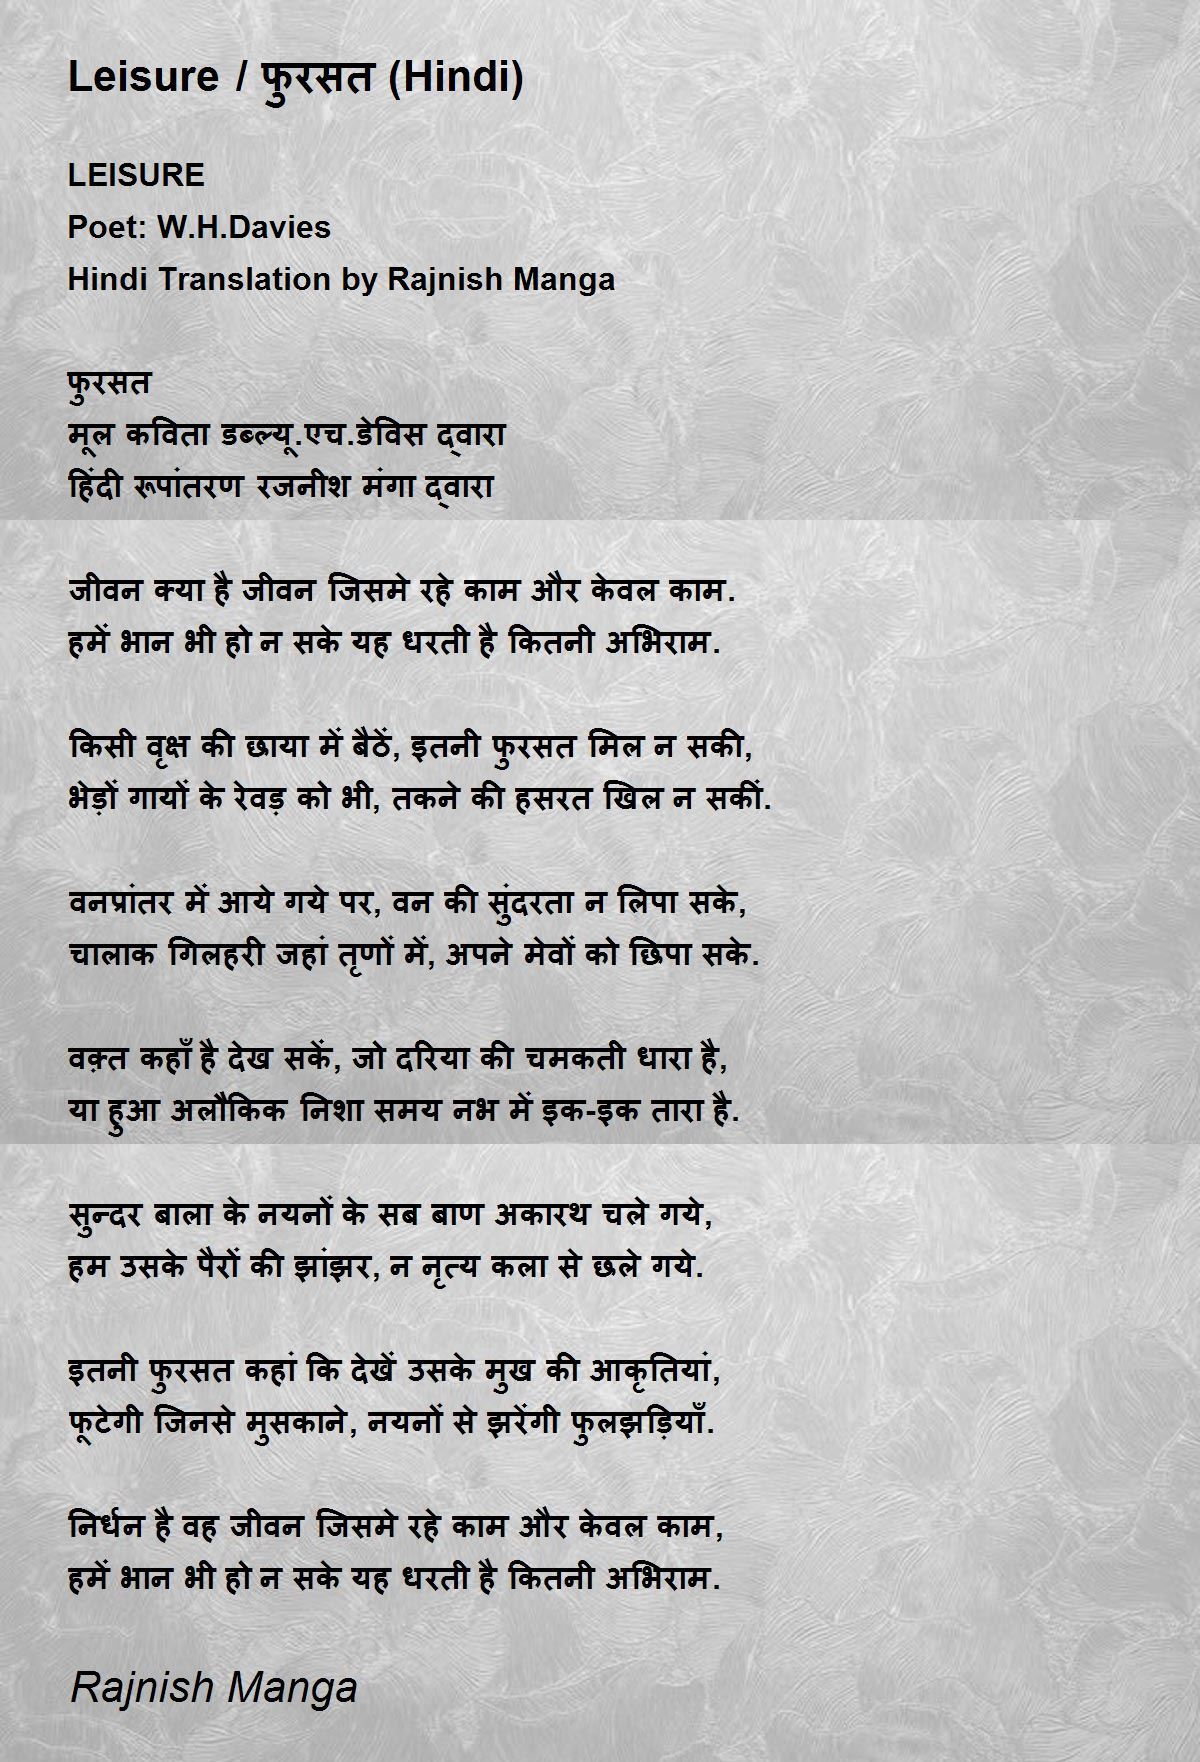 Leisure / फुरसत (Hindi)
LEISURE
Poet: W.H.Davies
Hindi Translation by Rajnish Manga
फुरसत
मूल कविता डब्ल्यू.एच.डेविस द्वारा
हिंदी रूपांतरण रजनीश मंगा द्वारा
जीवन क्या है जीवन जिसमे रहे काम और केवल काम.
हमें भान भी हो न सके यह धरती है कितनी अभिराम.
किसी वृक्ष की छाया में बैठें, इतनी फुरसत मिल न सकी,
भेड़ों गायों के रेवड़ को भी, तकने की हसरत खिल न सकीं.
वनप्रांतर में आये गये पर, वन की सुंदरता न लिपा सके,
चालाक गिलहरी जहां तृणों में, अपने मेवों को छिपा सके.
वक़्त कहाँ है देख सकें, जो दरिया की चमकती धारा है,
या हुआ अलौकिक निशा समय नभ में इक-इक तारा है.
सुन्दर बाला के नयनों के सब बाण अकारथ चले गये,
हम उसके पैरों की झांझर, न नृत्य कला से छले गये.
इतनी फुरसत कहां कि देखें उसके मुख की आकृतियां,
फूटेगी जिनसे मुसकाने, नयनों से झरेंगी फुलझड़ियाँ.
निर्धन है वह जीवन जिसमे रहे काम और केवल काम,
हमें भान भी हो न सके यह धरती है कितनी अभिराम.
Rajnish Manga